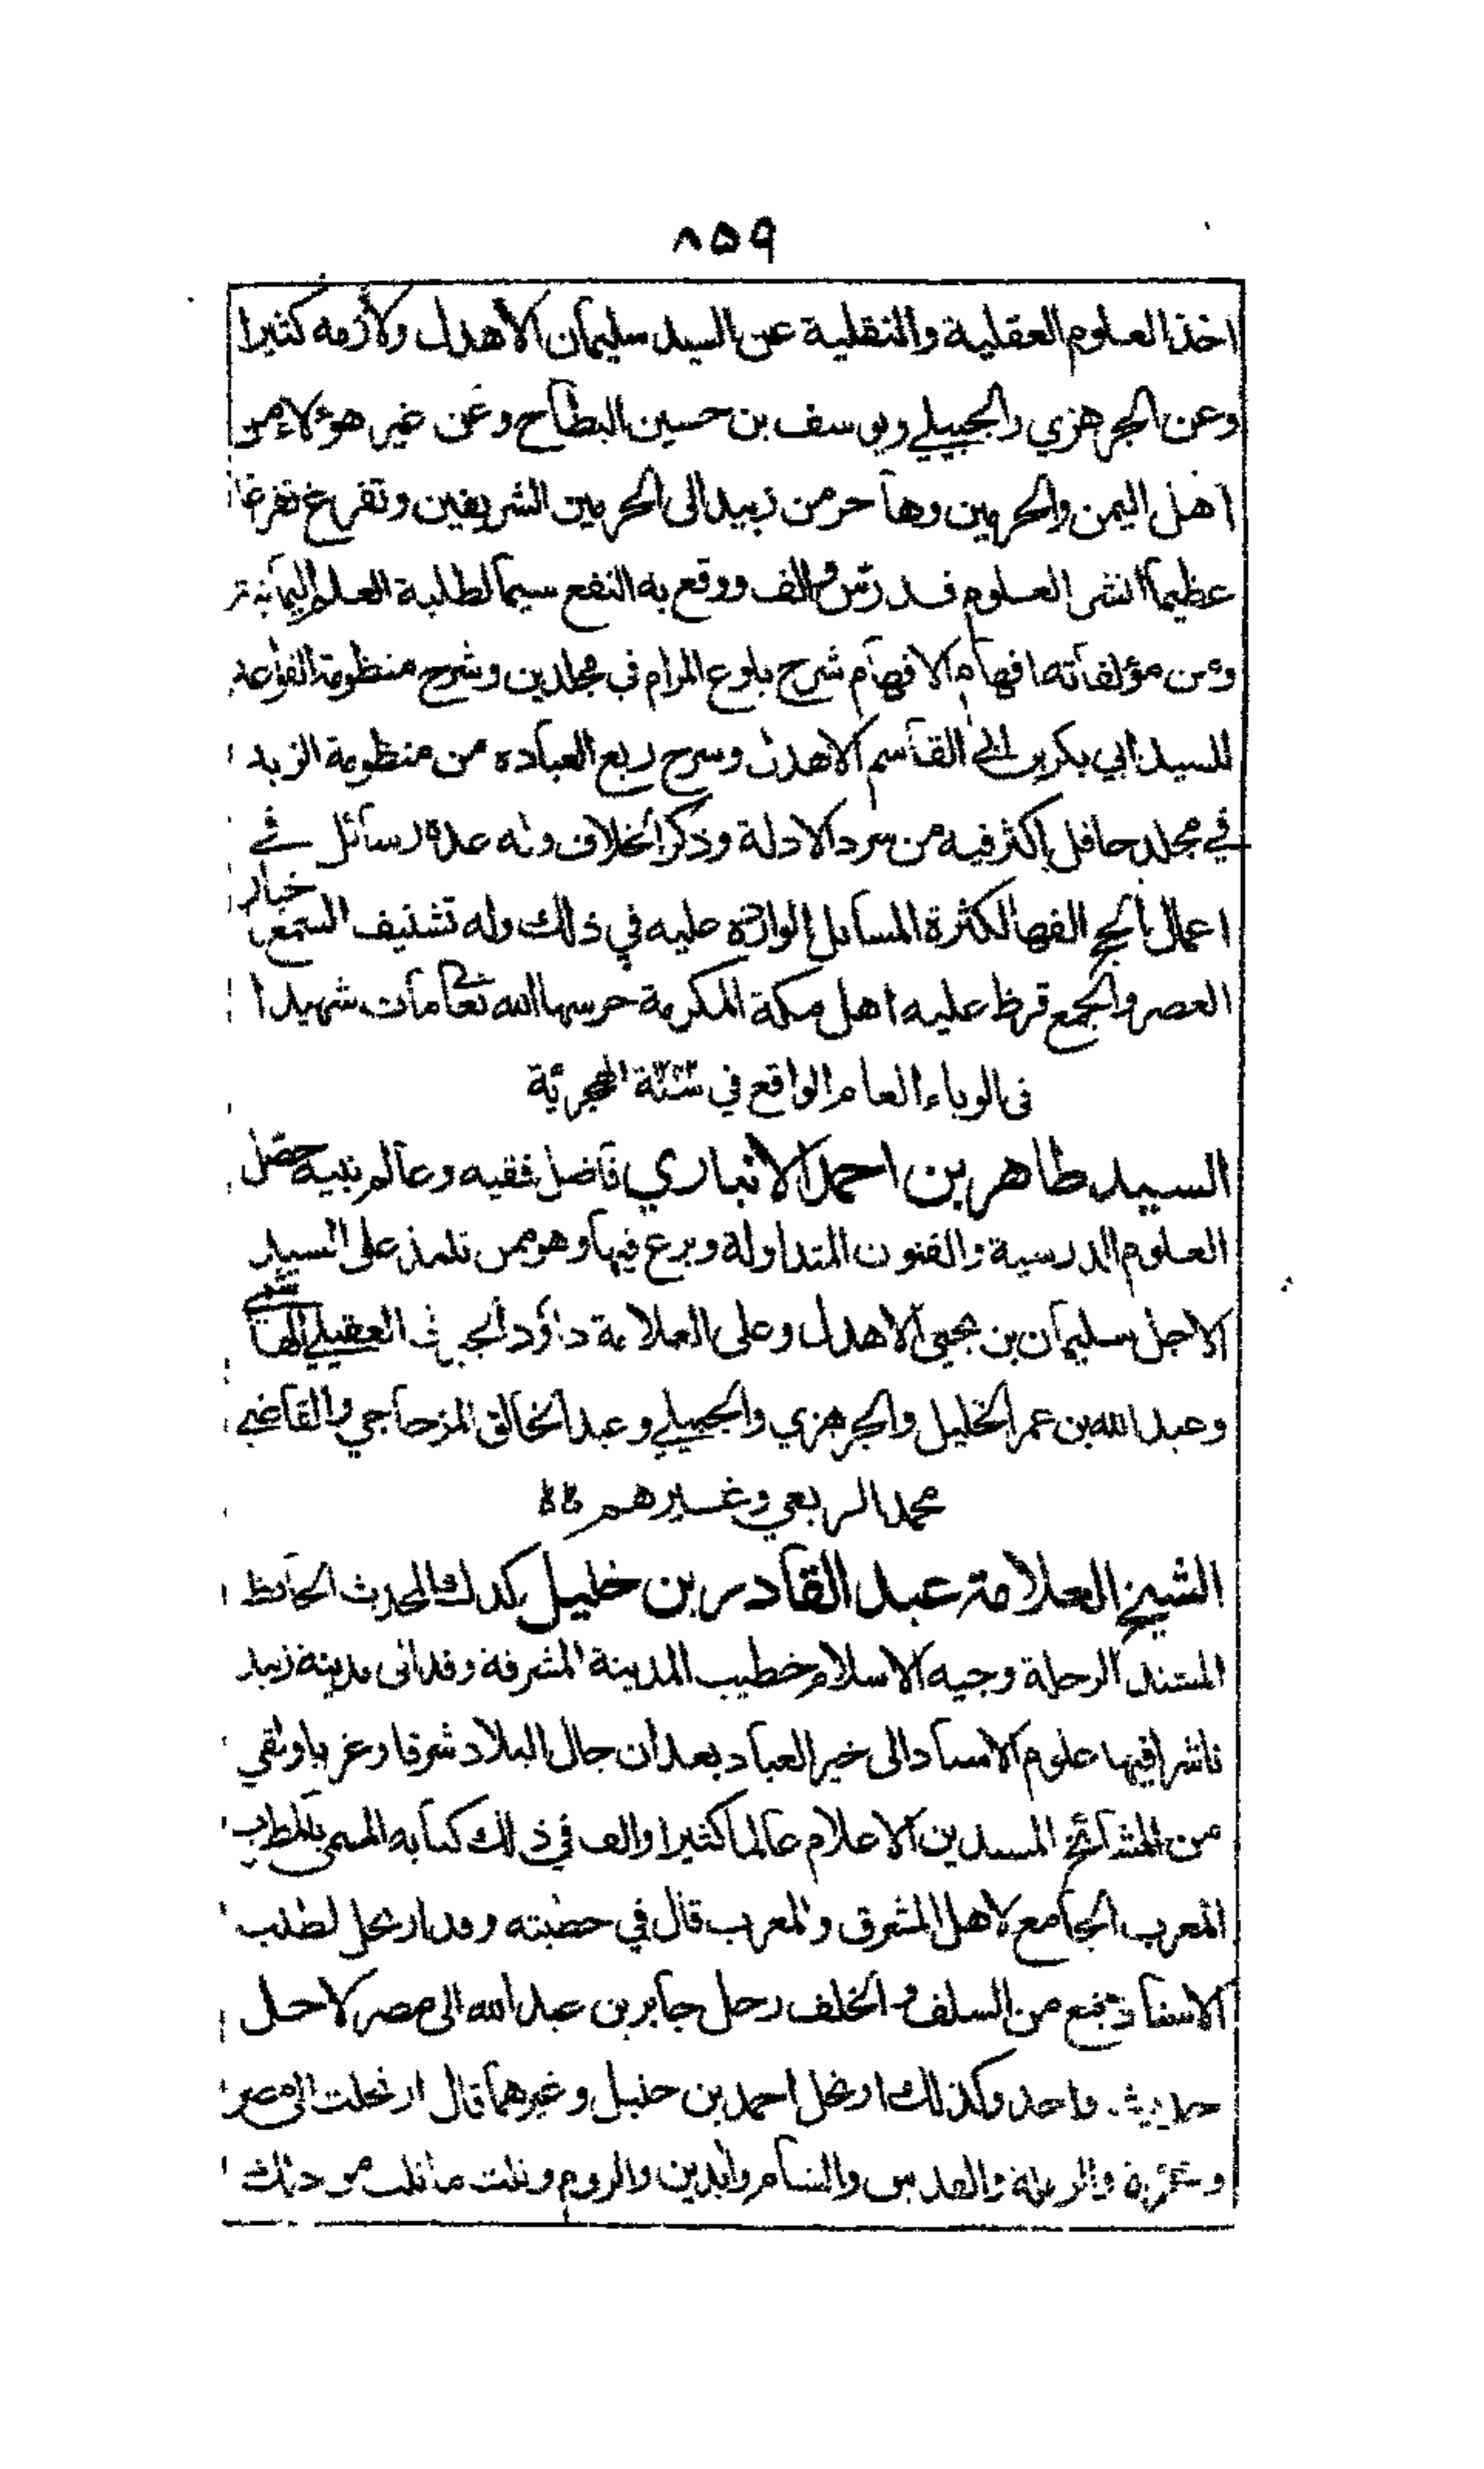 ٨٥٩
اخذ العلوم العقلية والنقلية عن السيد سليمان الأهدل ولازمه كثيرا
وعن الجرهزي والجبيلي ويوسف بن حسين البطاح وعن غير هؤلاء من
اهل اليمن والحرمين وهاجر من زبيد الى الحرمين الشريفين وتفرغ تفرغا
عظيما لنشر العلوم فدرس والف ووقع به النفع سيما لطلبة العلم اليمانية
ومن مؤلفاته افهام الافهام شرح بلوغ المرام في مجلدين وشرح منظومة القواعد
للسيد ابي بكر بن ابي القاسم الاهدل وشرح ربع العبادة من منظومة الزبد
في مجلد حافل اكثر فيه من سرد الادلة وذكر الخلاف وله عدة رسائل في
اعمال الحج الفها لكثرة المسائل الواردة عليه في ذلك وله تشنيف السمع باخبار
العصر والجمع قرظ عليه اهل مكة المكرمة حرسها الله تعالى مات شهيدا
في الوباء العام الواقع في سنة الهجرية
السيد طاهر بن احمد الانباري فاضل فقيه وعالم نبيه حصل
العلوم الدرسية والفنون المتداولة وبرع فيها وهو ممن تلمذ على السيد
الاجل سليمان بن يحيى الاهدل وعلى العلامة داؤد الجبرتي العقيلي الهاشمي
وعبد الله بن عمر الخليل والجرهزي والجبيلي وعبد الخالق المزجاجي والقاضي
محمد الربعي وغيرهم
الشيخ العلامة عبد القادر بن خليل كدك المحدث الحافظ
المسند الرحلة وجيه الاسلام خطيب المدينة المشرفة وفد الى مدينة زبيد
ناشرا فيها علوم الاسناد الى خير العباد بعد ان جال البلاد شرقا وغربا ولقي
من المشائخ المسندين الاعلام عالما كثيرا والف في ذلك كتابه المسمى بالمطرب
المعرب الجامع لاهل المشرق والمغرب قال في خطبته وقد ارتحل لطلب
الاسناد جمع من السلف والخلف رحل جابر بن عبد الله الى مصر لاجل
حديث واحد وكذلك ارتحل احمد بن حنبل وغيرهما قال ارتحلت الى مصر
وغزة والرملة والقدس والشام والروم ونلت ما نلت من ذلك